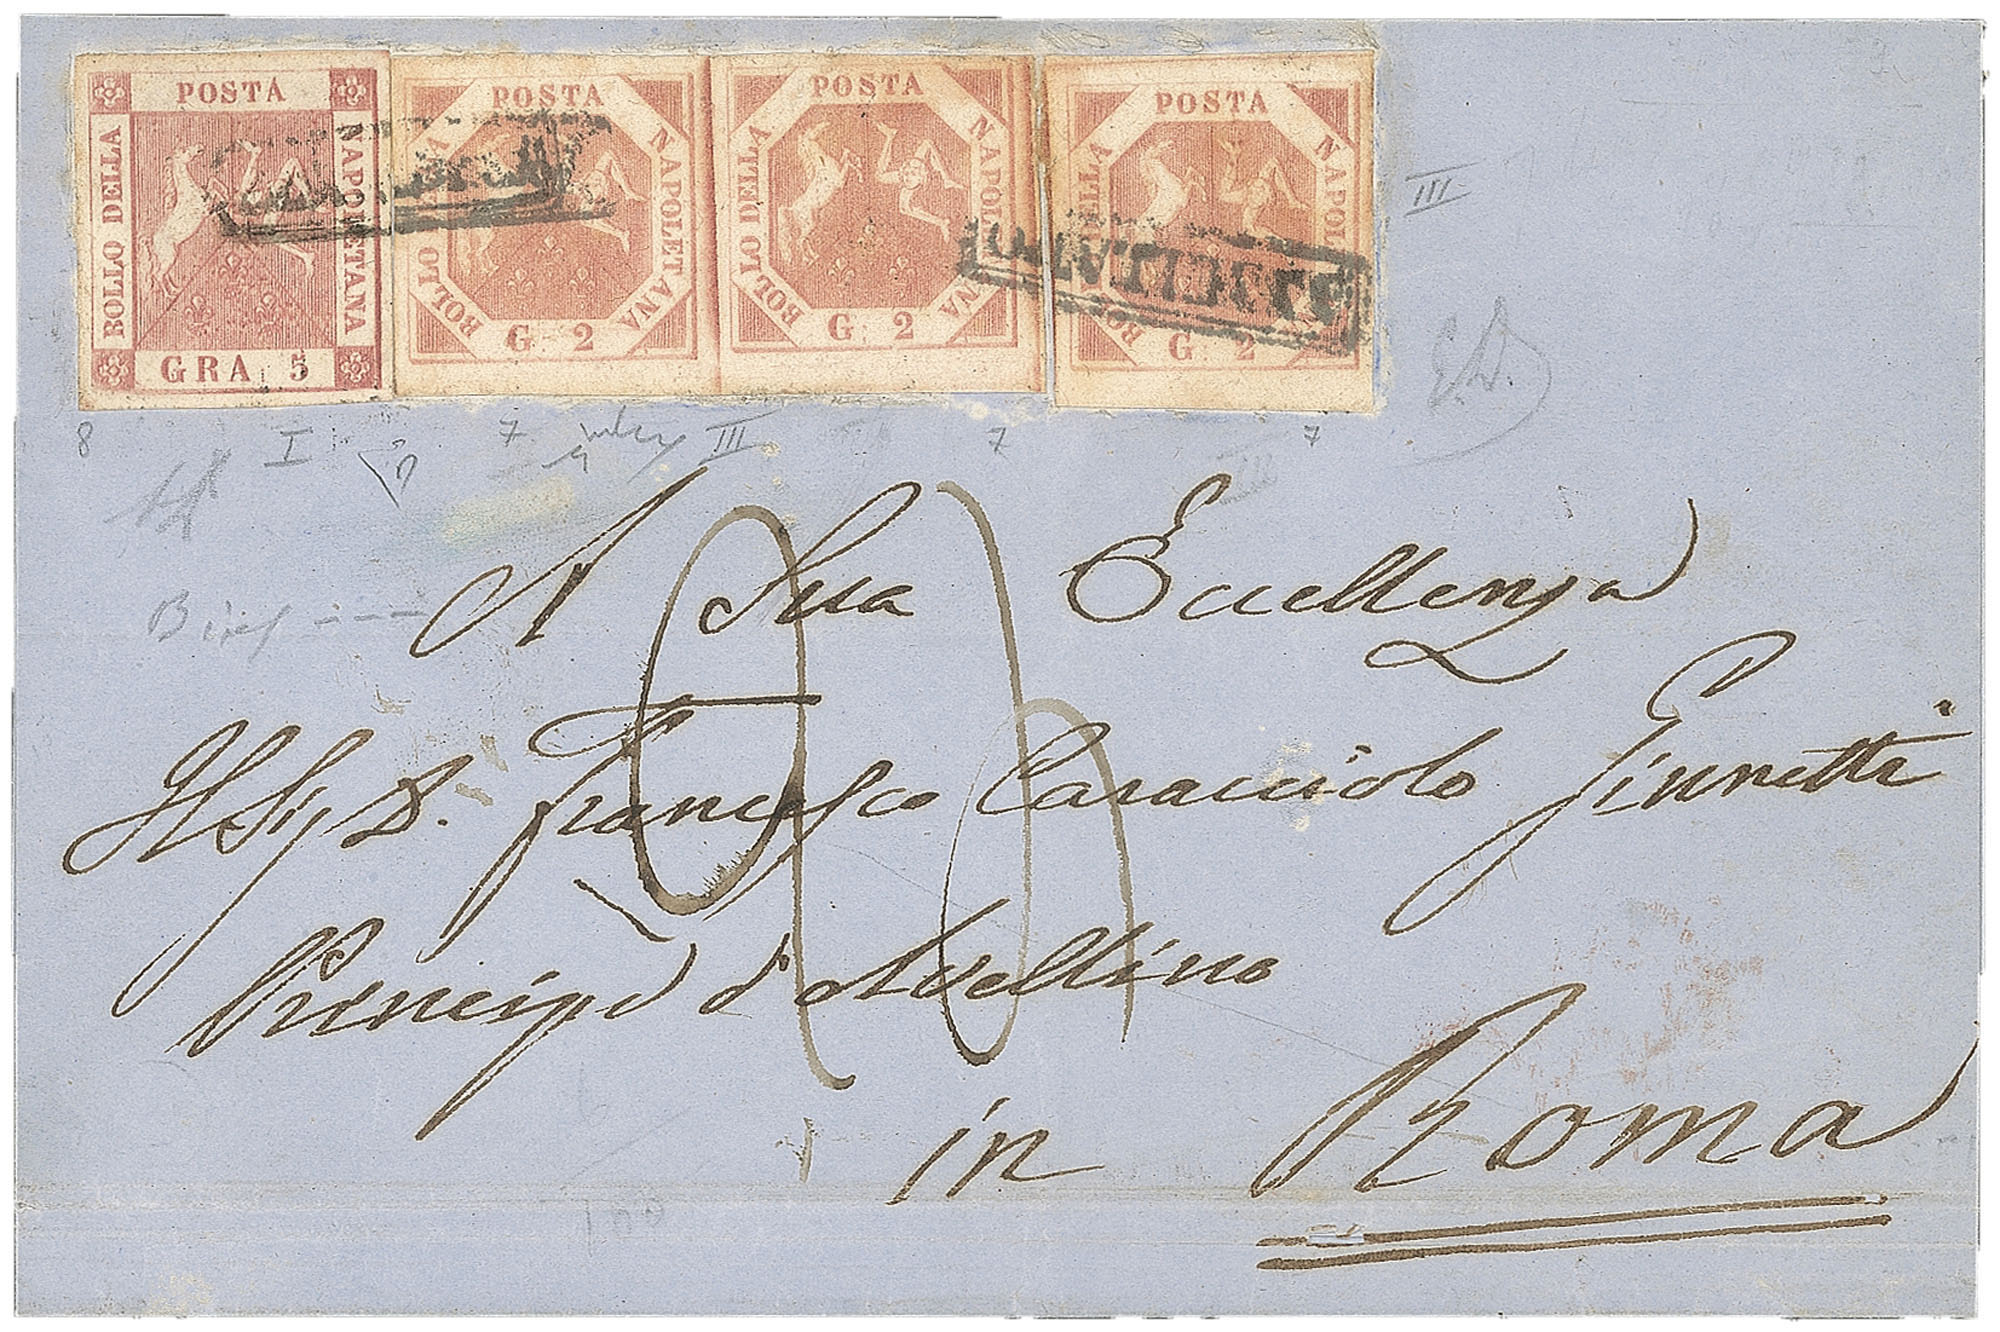 POSTA
BOLLO DELLA
NAPOLETANA
GRA 5
POSTA
BOLLO
NAPOLETANA
G. 2
POSTA
BOLLO DELLA
NAPOLE NA
G. 2
POSTA
BOL ELLA
NAPOL NA
G. 2
ANNULLATO
III
8
I
7
III
7
7
III
A Sua Eccellenza
Il Sig D. Francesco Caracciolo Ginnetti
Principe d'Avellino
in Roma